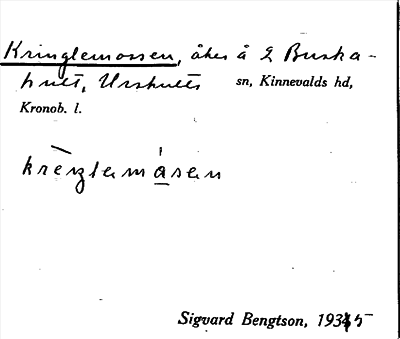 Kringlemossen, åker å L Buska-
hult, Urshults sn, Kinnevalds hd,
Kronob. l.
krènzlamåsen
Sigvard Bengtson, 1935